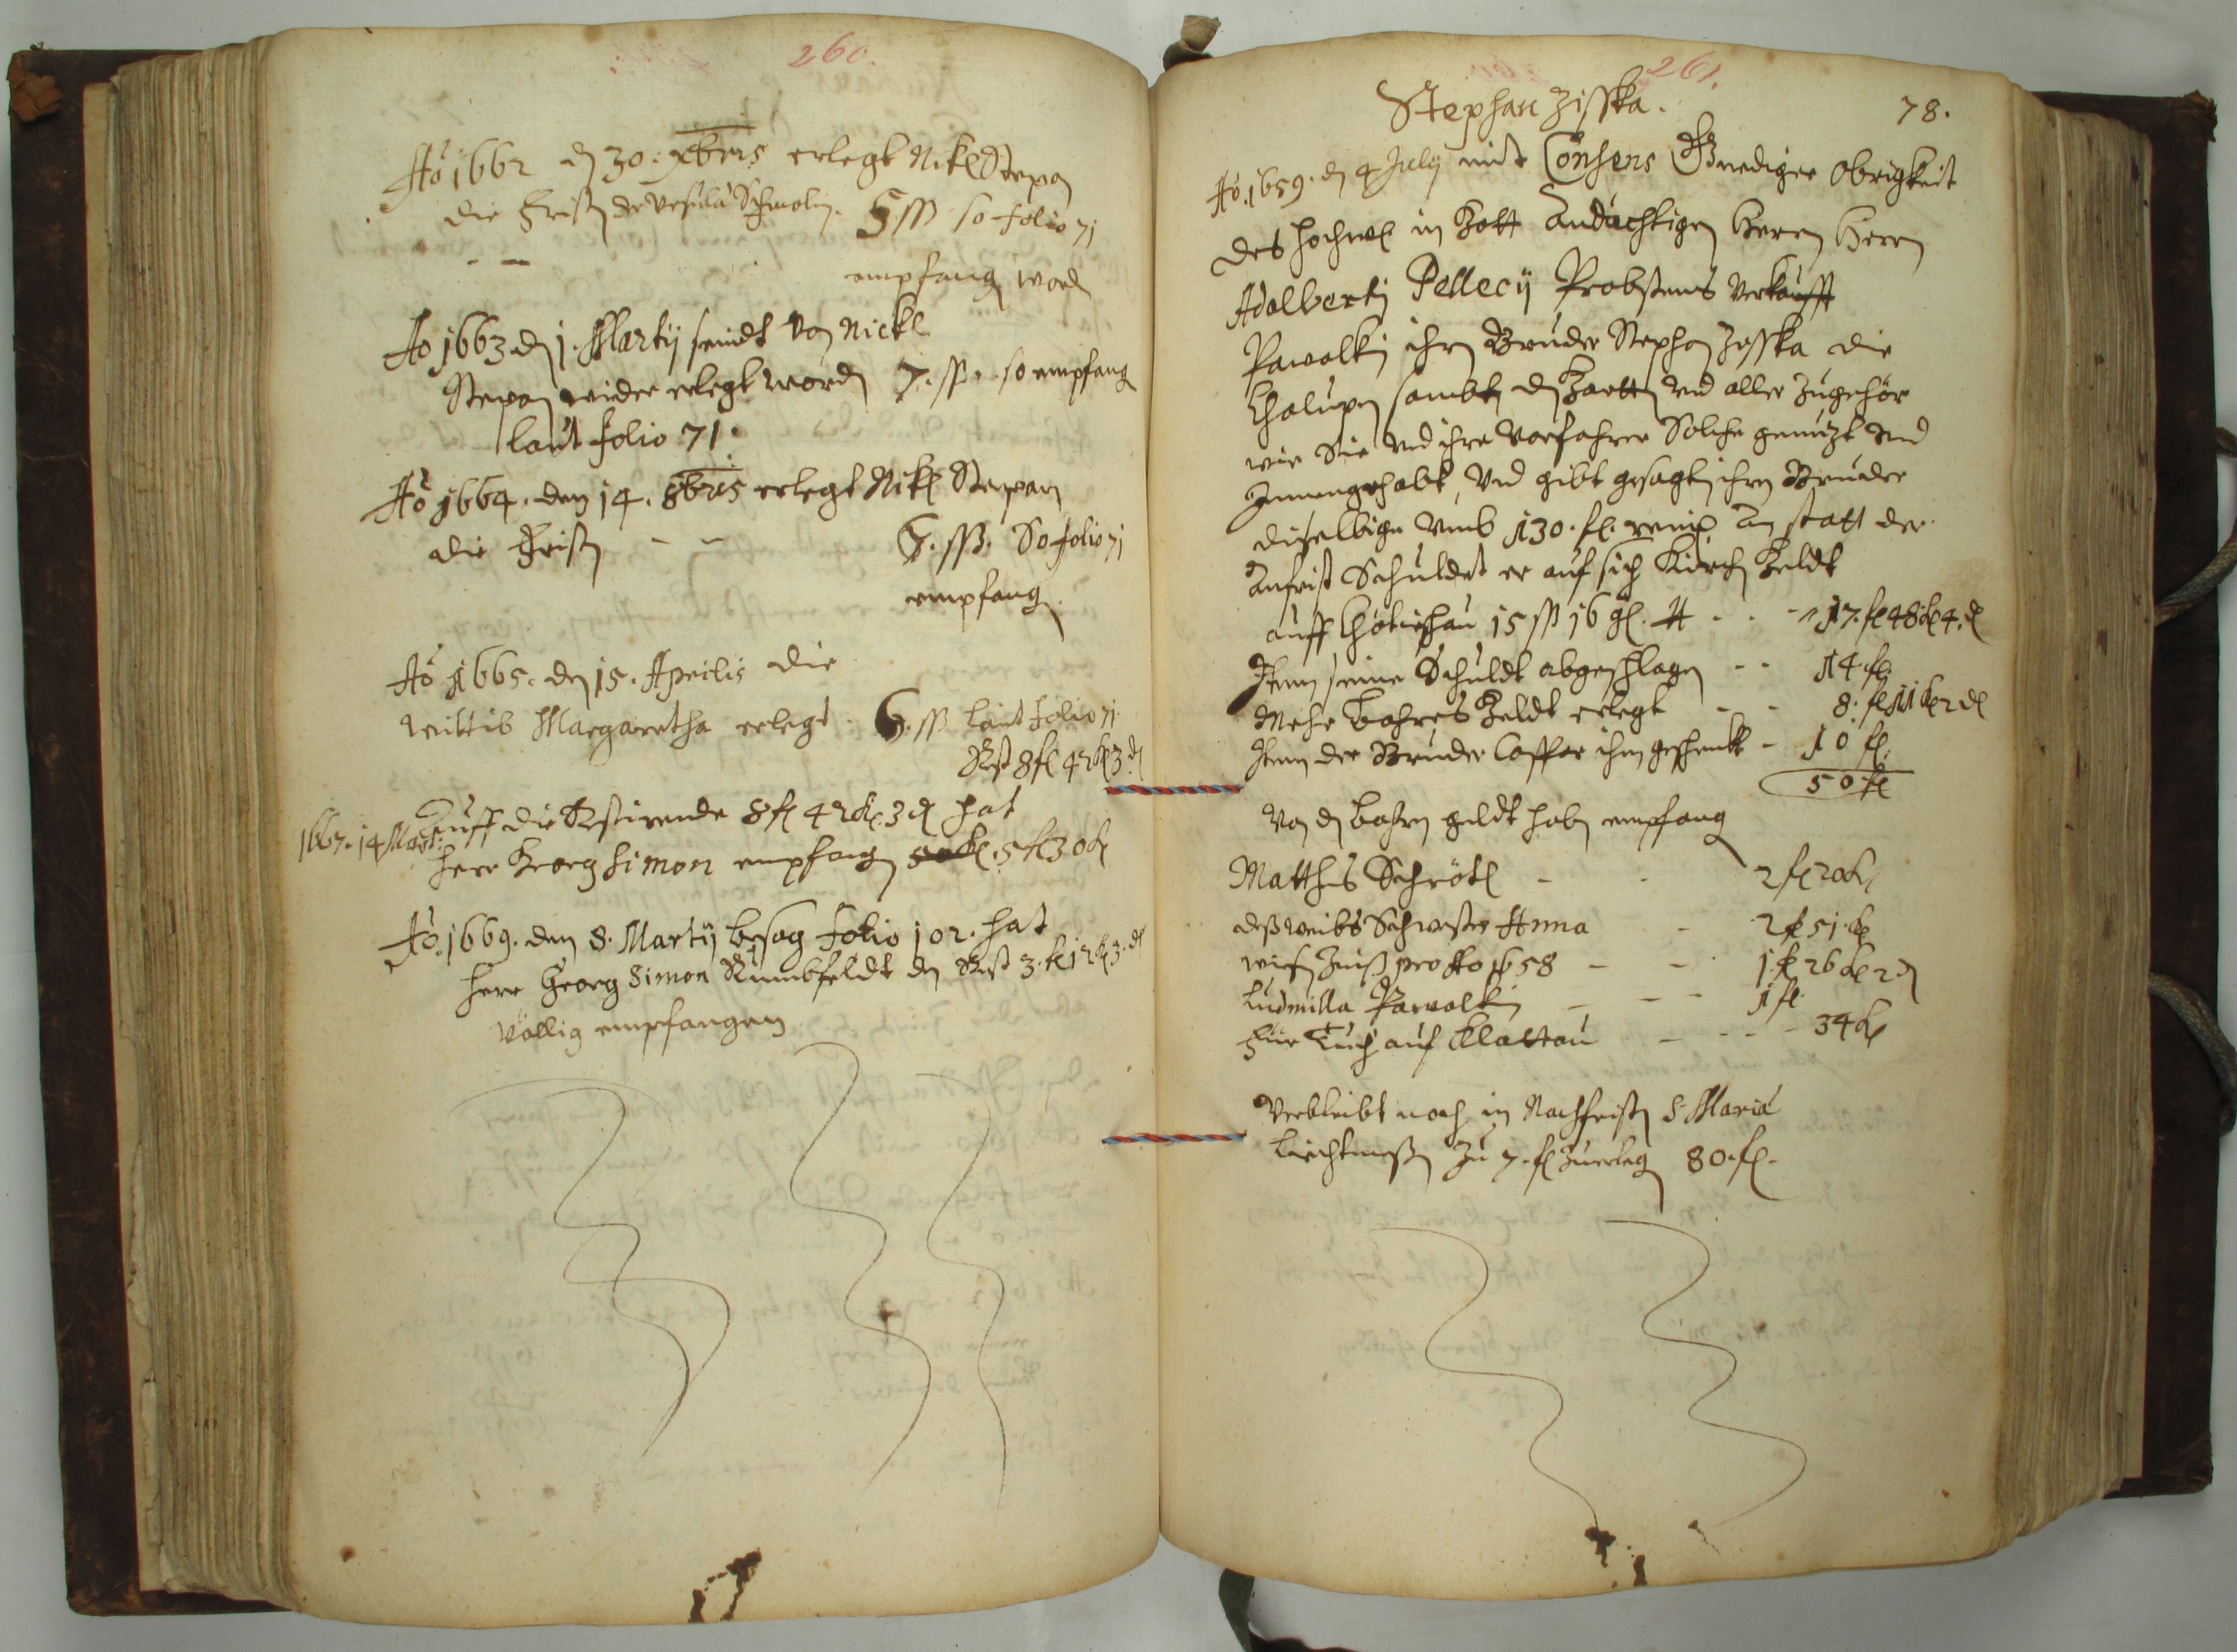 260.
Aō 1662 dn 30. xbris erlegt Nikl Stepan
die Fristn der Ursula Schmolin. 5 ßß so folio 71
empfangn wordn
Ao 1663 dn 1. Martij seindt von Nickl
Stepan wieder erlegt wordn 7. ßß. so empfangn
laut folio 71.
Aō 1664. den 14. 8bris erlegt Nikl Stepan
die Fristn - - 7. ßß. So folio 71
empfangn.
Aō 1665. dn 15. Aprilis die
wittib Margaretha erlegt. 6. ßß laut folio 71
Rest 8 fl 42 kr 3 d
Auff die Restirende 8 fl 42 kr 3 d hat
1667. 14 Marti:
Herr Georg Simon empfangn 5 fl 30 kr
Aō. 1669. den 8. Martij besag folio 102. hat
herr Georg Simon Rumbfeldt den Rest 3. fl 12 kr 3. d
Völlig empfangen
261.
Stephan Zisska. 78.
Aō. 1659. dn 4 July mit Consens Gnediger Obrigkeit
des hochw in Gott Andächtigen Herrn Herrn
Adalbertj Pellecij Probstens verkaufft
Pawalkin ihrn Bruder Stephan Zisska die
Chalupen sambt dn Gartten und aller Zugehör
wie Sie und ihre Vorfahrer Solche genutzt und
Innengehabt, Und gibt gesagten ihrn Bruder
dieselbige umb 130. fl. rein. An statt der
Anfrist Schuldet er auf sich Kirchn Geldt
auff Chotieschau 15 ßß 16 gl. - - 17. fl 48 kr 4. d
Item seine Schuldt abgeschlagen - - 14. fl.
Mehr Bahres Geldt erlegt - - 8. fl 11 kr 2 d
Item der Bruder Casspar ihm geschenkt - 10 fl.
50 fl
Von dn bahrn geldt habn empfangn
Matthes Schrötl - - 2 fl 20 kr
deß weibs Schwester Anna - 2 fl 51. kr
Zinß pro Ao 1658 - - 1. fl 26 kr 2 d
Ludmilla Pawalkin - - - 1 fl
für Tuch auf Klattau - - - - 34 kr
Verbleibt noch in Nachfristn S. Maria
Liechtmeßn zu 7. fl zuerlegn 80. fl.